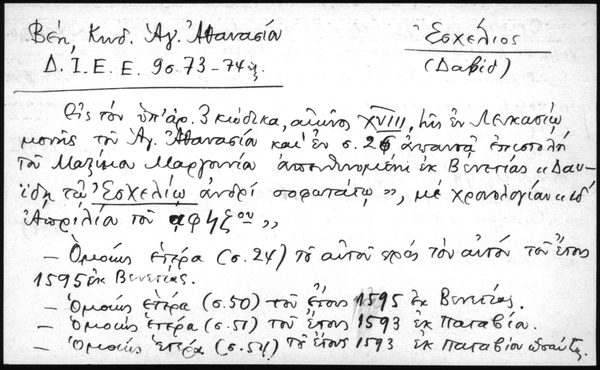 Βέη, Κωδ. Ἁγ. Ἀθανασίου
Ἐσχέλιος
Δ. Ι. Ε. Ε. 9 σ. 73-74
(Δαβίδ)
Εἰς τὸν ὑπ' ἀρ. 3 κώδικα, αἰῶνος XVIII, τῆς ἐν Λευκασίῳ
μονῆς τοῦ Ἁγ. Ἀθανασίου καὶ ἐν σ. 26 ἀπαντᾷ ἐπιστολὴ
τοῦ Μαξίμου Μαργουνίου ἀπευθυνομένη ἐκ Βενετίας «Δαυ-
ίδῃ τῷ Ἐσχελίῳ ἀνδρὶ σοφωτάτῳ», μὲ χρονολογίαν «ιδ'
Ἀπριλίου τοῦ ͵αφϟεου»
- Ὁμοίως ἑτέρα (σ. 24) τοῦ αὐτοῦ πρὸς τὸν αὐτὸν τοῦ ἔτους
1595 ἐκ Βενετίας.
- Ὁμοίως ἑτέρα (σ. 50) τοῦ ἔτους 1595 ἐκ Βενετίας.
- Ὁμοίως ἑτέρα (σ. 51) τοῦ ἔτους 1593 ἐκ Παταβίου.
- Ὁμοίως ἑτέρα (σ. 54) τοῦ ἔτους 1593 ἐκ Παταβίου ὡσαύτως.